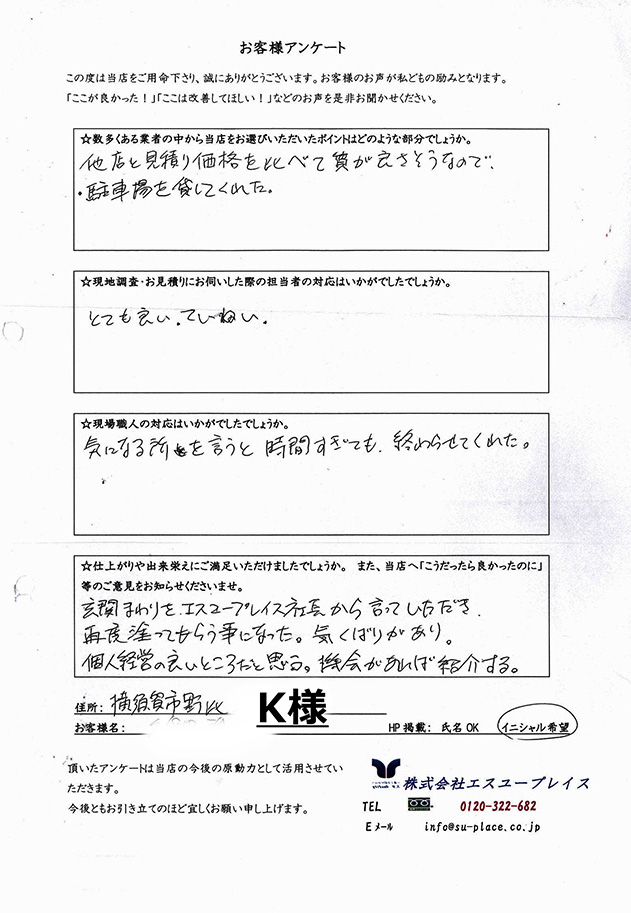 お客様アンケート
この度は当店をご用命下さり、誠にありがとうございます。お客様のお声が私どもの励みとなります。
「ここが良かった！」「ここは改善してほしい！」などのお声を是非お聞かせください。
☆数多くある業者の中から当店をお選びいただいたポイントはどのような部分でしょうか。
他店と見積り価格を比べて質が良さそうなので、
・駐車場を貸してくれた。
☆現地調査・お見積りにお伺いした際の担当者の対応はいかがでしたでしょうか。
とても良い。ていねい。
☆現場職人の対応はいかがでしたでしょうか。
気になる所を言うと時間すぎても、終わらせてくれた。
☆仕上がりや出来栄えにご満足いただけましたでしょうか。 また、当店へ「こうだったら良かったのに」
等のご意見をお知らせくださいませ。
玄関まわりをエスユープレイス社長から言っていただき、
再度塗ってもらう事になった。気くばりがあり。
個人経営の良いところだと思う。機会があれば紹介する。
住所: 横須賀市野比
お客様名: K様
HP掲載: 氏名OK イニシャル希望
頂いたアンケートは当店の今後の原動力として活用させてい
ただきます。
今後ともお引き立てのほど宜しくお願い申し上げます。
株式会社エスユープレイス
TEL 0120-322-682
Eメール info@su-place.co.jp